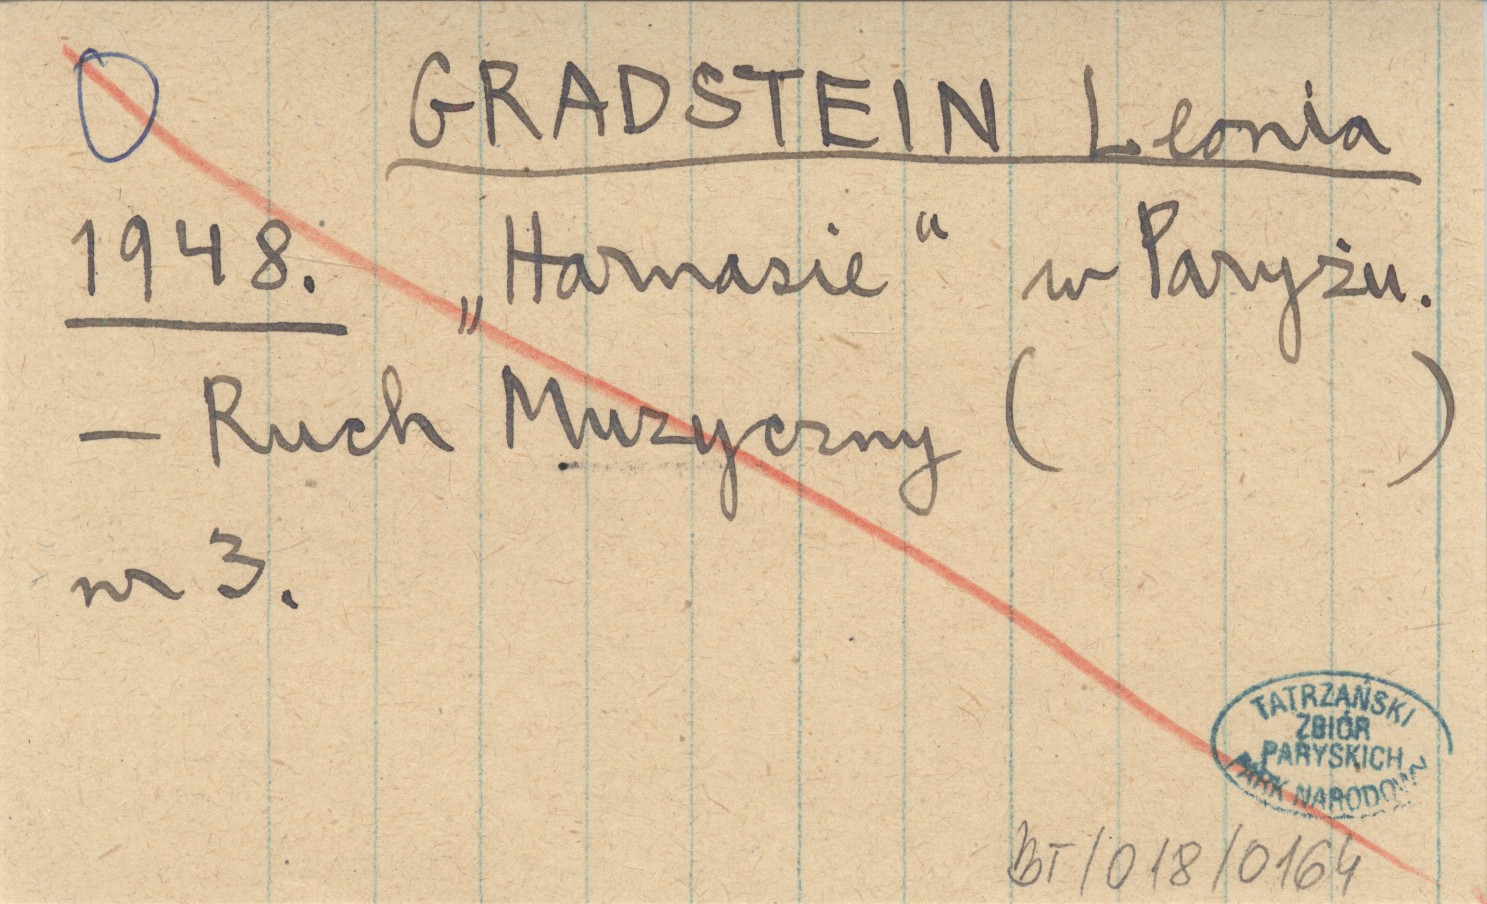 GRADSTEIN Leonia
1948. „Harnasie“ w Paryżu.
— Ruch Muzyczny ( )
nr 3.
TATRZAŃSKI
ZBIÓR
PARYSKICH
PARK NARODOWY
BT/018/0164